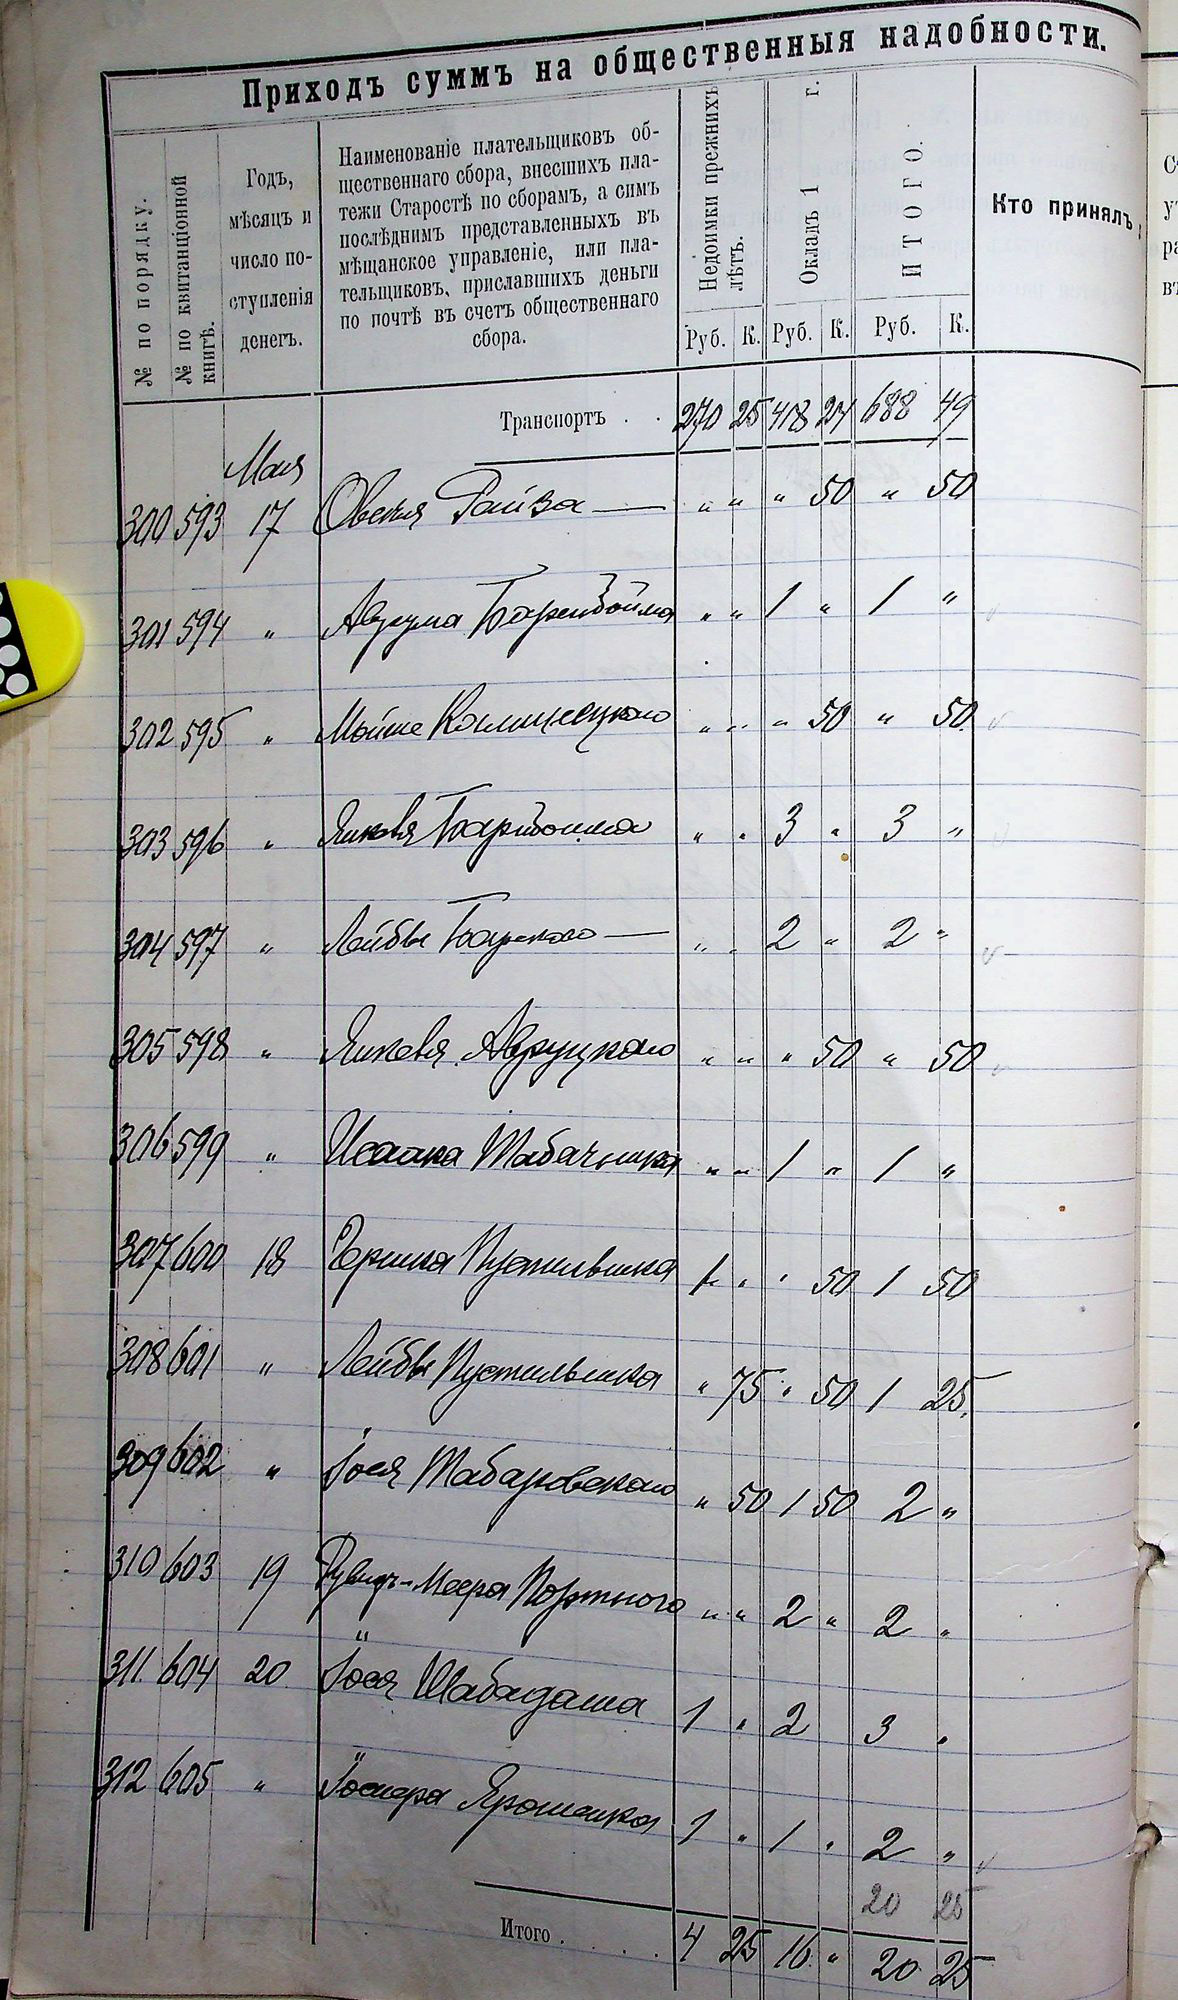 Приходъ суммъ на общественныя надобности.
№ по порядку.
№ по квитанціонной
книгѣ.
Годъ,
мѣсяцъ и
число по-
ступленія
денегъ.
Наименованіе плательщиковъ об-
щественнаго сбора, внесшихъ пла-
тежи Старостѣ по сборамъ, а симъ
послѣднимъ представленныхъ въ
мѣщанское управленіе, или пла-
тельщиковъ, приславшихъ деньги
по почтѣ въ счетъ общественнаго
сбора.
Недоимки прежнихъ
лѣтъ.
Окладъ 1 г.
ИТОГО.
Кто принялъ
Руб. К. Руб. К. Руб. К.
Транспортъ . . 270 25 418 24 688 49
Мая
300 593 17 Овсея Райза — " " " 50 " 50
301 594 " Аврума Баренбойма " " 1 " 1 "
302 595 " Мойше Каминецкаго " " " 50 " 50
303 596 " Янкеля " " 3 " 3 "
304 597 " Лейбы Барскаго — " " 2 " 2 "
305 598 " Янкеля Авруцкаго " " " 50 " 50
306 599 " Исаака Табачника " " 1 " 1 "
307 600 18 Герша Пустильника 1 " " 50 1 50
308 601 " Лейбы Пустильника " 75 " 50 1 25
309 602 " Іося " 50 1 50 2 "
310 603 19 Меера Портного " " 2 " 2 "
311 604 20 Іося Шабадаша 1 " 2 3 "
312 605 " 1 " 1 " 2 "
20 25
Итого . . . . . 4 25 16 " 20 25